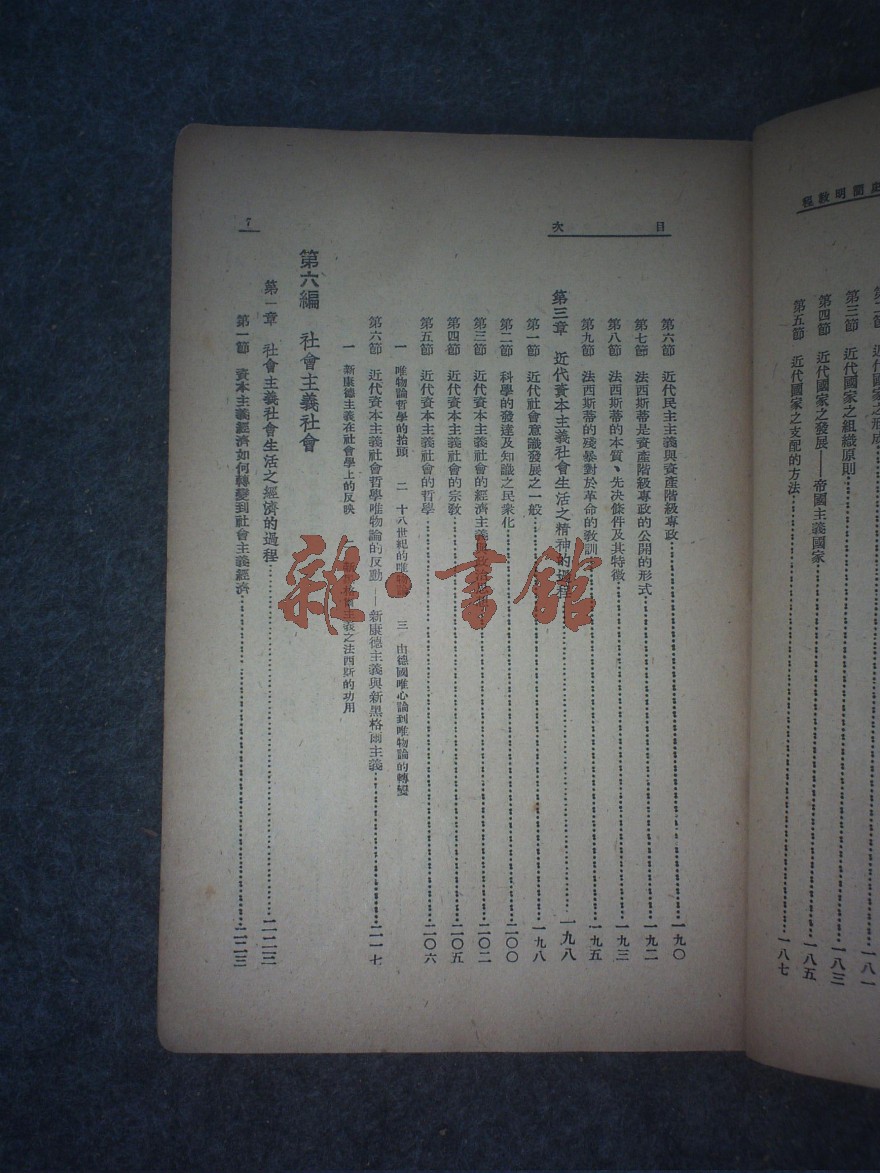 明教程
第三節 近代國家之組織原則……一八三
第四節 近代國家之發展——帝國主義國家……一八五
第五節 近代國家之支配的方法……一八七
目次
第六節 近代民主主義與資產階級專政……一九〇
第七節 法西斯蒂是資產階級專政的公開的形式……一九二
第八節 法西斯蒂的本質、先決條件及其特徵……一九三
第九節 法西斯蒂的殘暴對於革命的教訓……一九五
第三章 近代資本主義社會生活之精神的過程……一九八
第一節 近代社會意識發展之一般……一九八
第二節 科學的發達及知識之民衆化……二〇〇
第三節 近代資本主義社會的經濟主義……二〇二
第四節 近代資本主義社會的宗教……二〇五
第五節 近代資本主義社會的哲學……二〇六
一 唯物論哲學的抬頭 二 十八世紀的唯物論 三 由德國唯心論到唯物論的轉變
第六節 近代資本主義社會哲學唯物論的反動——新康德主義與新黑格爾主義……二一七
一 新康德主義在社會學上的反映 二 主義之法西斯的功用
第六編 社會主義社會
第一章 社會主義社會生活之經濟的過程……二二三
第一節 資本主義經濟如何轉變到社會主義經濟……二二三
7
雜·書館